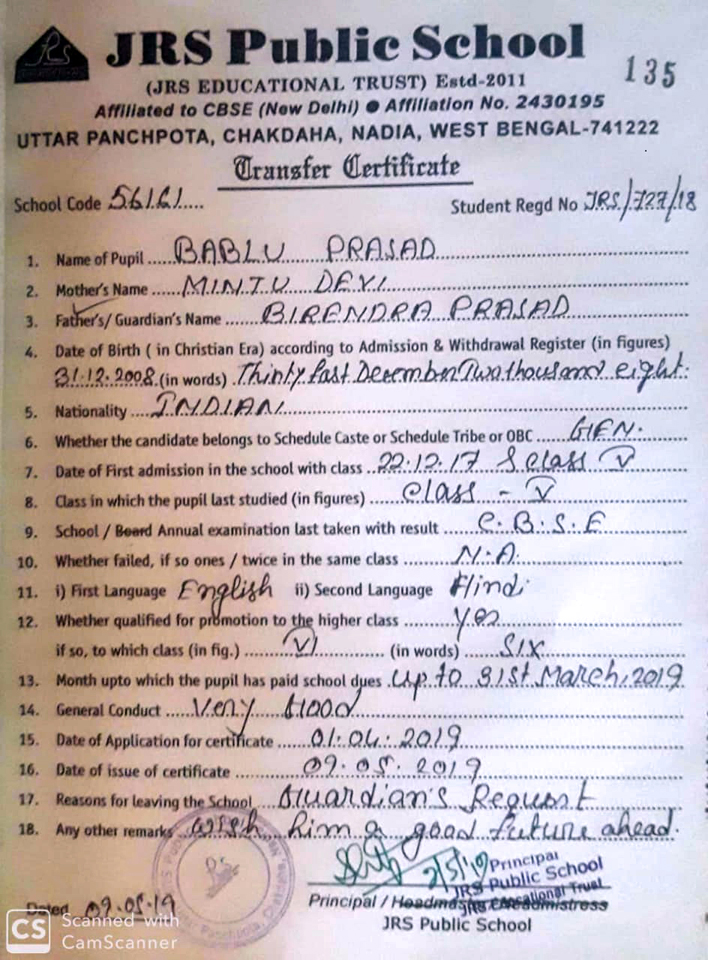 JRS Public School
135
(JRS EDUCATIONAL TRUST) Estd-2011
Affiliated to CBSE (New Delhi) ● Affiliation No. 2430195
UTTAR PANCHPOTA, CHAKDAHA, NADIA, WEST BENGAL-741222
Transfer Certificate
School Code 56161.... Student Regd No JRS/727/18
1. Name of Pupil ....BABLU PRASAD
2. Mother's Name ....MINTU DEVI
3. Father's/ Guardian's Name ....BIRENDRA PRASAD
4. Date of Birth ( in Christian Era) according to Admission & Withdrawal Register (in figures)
31.12.2008 (in words) Thirty fast December Two thousand eight.
5. Nationality ....INDIAN
6. Whether the candidate belongs to Schedule Caste or Schedule Tribe or OBC ....GEN.
7. Date of First admission in the school with class ..22.12.17 & class V
8. Class in which the pupil last studied (in figures) ....class - V
9. School / Board Annual examination last taken with result ....C.B.S.E
10. Whether failed, if so ones / twice in the same class ....N.A.
11. i) First Language English ii) Second Language Hindi
12. Whether qualified for promotion to the higher class ....yes
if so, to which class (in fig.) ....VI (in words) ....SIX
13. Month upto which the pupil has paid school dues .up to 31st March, 2019
14. General Conduct ....Very Good
15. Date of Application for certificate ....01.04.2019
16. Date of issue of certificate ....09.05.2019
17. Reasons for leaving the School ..Guardian's Request
18. Any other remarks ..Wish him a good future ahead.
Principal
JRS Public School
JRS Educational Trust
Dated 09.05.19
Principal / Headmaster / Headmistress
JRS Public School
CS Scanned with
CamScanner